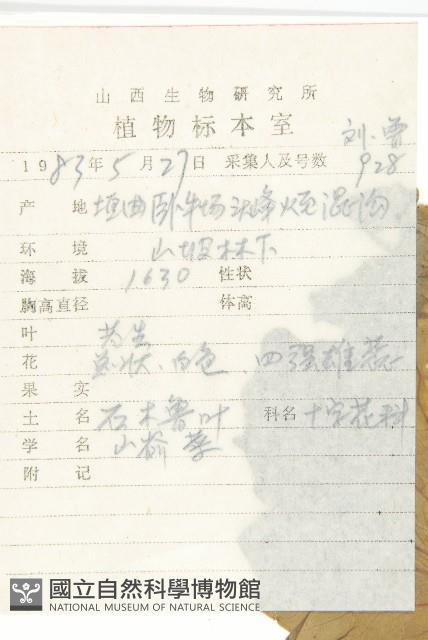 山西生物研究所
植物标本室
刘、曾
1983年5月27日 采集人及号数 928
产地 垣曲卧牛场 混沟
环境 山坡林下
海拔 1630 性状
胸高直径 体高
叶 为生
花 状、白色、四强雄蕊
果实
土名 石木鲁叶 科名 十字花科
学名 山萮菜
附记
國立自然科學博物館
NATIONAL MUSEUM OF NATURAL SCIENCE